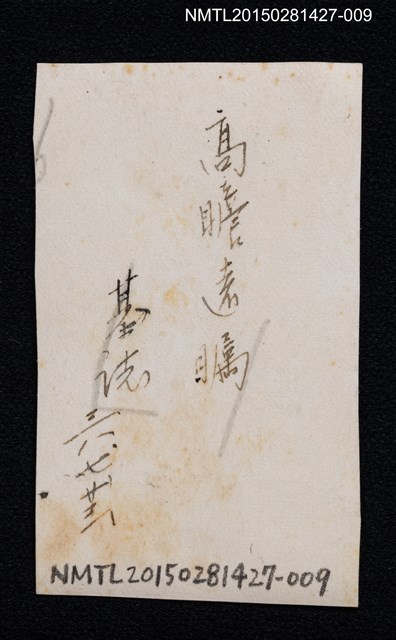 NMTL20150281427-009
高瞻遠矚
基誌
三八、七、廿三
NMTL20150281427-009